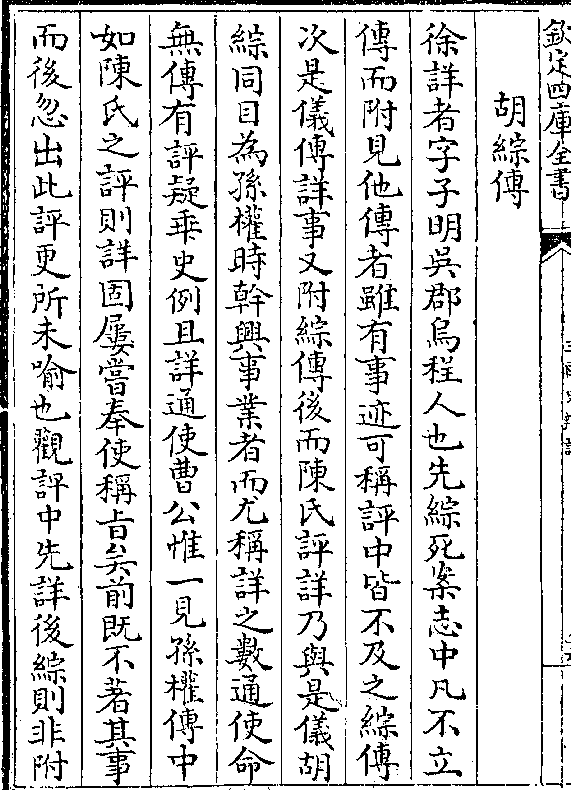 欽定四庫全書
胡綜傳
徐詳者字子明吳郡烏程人也先綜死案志中凡不立
傳而附見他傳者雖有事迹可稱評中皆不及之綜傳
次是儀傳詳事又附綜傳後而陳氏評詳乃與是儀胡
綜同目為孫權時幹興事業者而尤稱詳之數通使命
無傳有評疑乖史例且詳通使曹公惟一見孫權傳中
如陳氏之評則詳固屢嘗奉使稱旨矣前既不著其事
而後忽出此評更所未喻也觀評中先詳後綜則非附